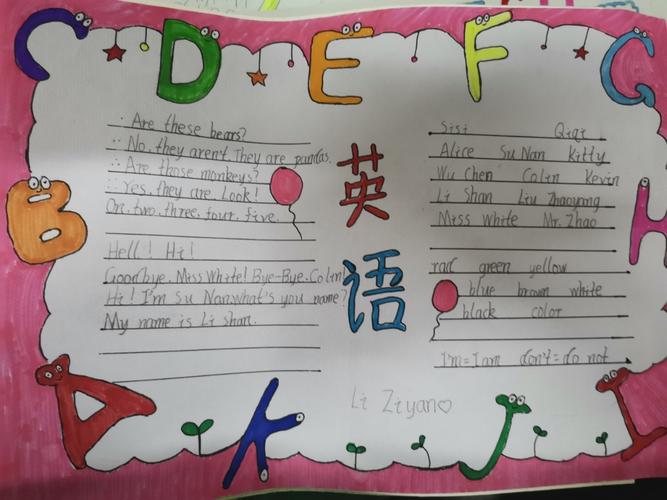 C D E F G
B
H
A K J I
: Are these bears?
: No, they aren't. They are pandas.
: Are those monkeys?
: Yes, they are. Look!
On, two, three, four, five.
Hell! Hi!
Goodbye, Miss White! Bye-Bye, Colin!
Hi! I'm Su Nan, what's you name?
My name is Li shan.
英语
Sisi Qiqi
Alice Su Nan kitty
Wu Chen Colin Kevin
Li Shan Liu Zhaoyang
Miss White Mr. Zhao
rad green yellow
blue brown white
black color
I'm=I am don't=do not
Li Ziyan♡